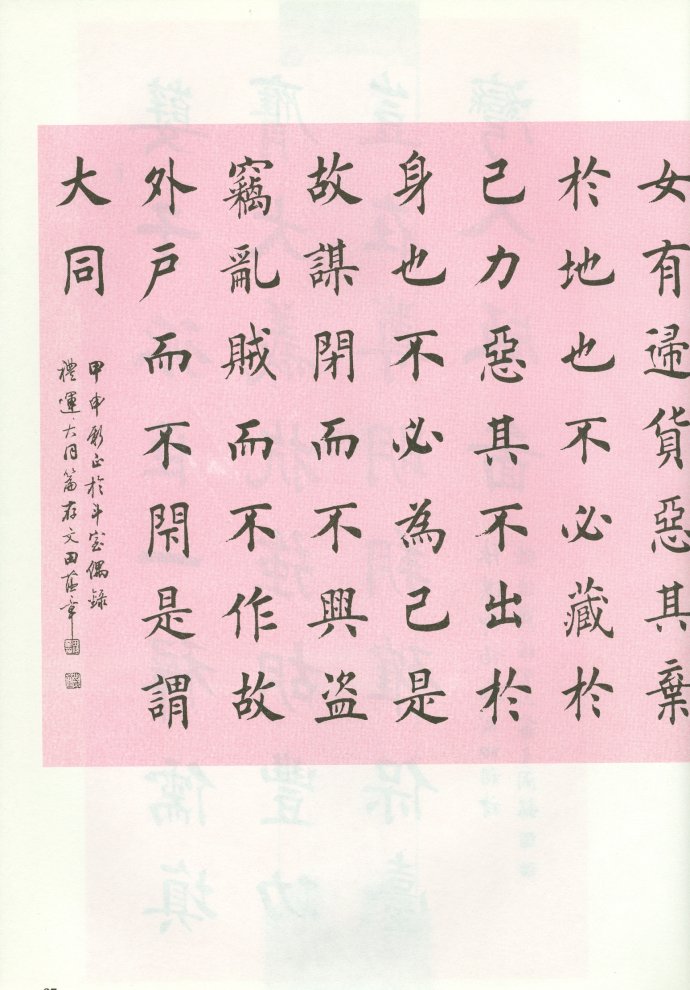 女有歸貨惡其棄
於地也不必藏於
己力惡其不出於
身也不必為己是
故謀閉而不興盗
竊亂賊而不作故
外戶而不閇是謂
大同
甲申新正於斗室偶錄
禮運大同篇存文田蔭章